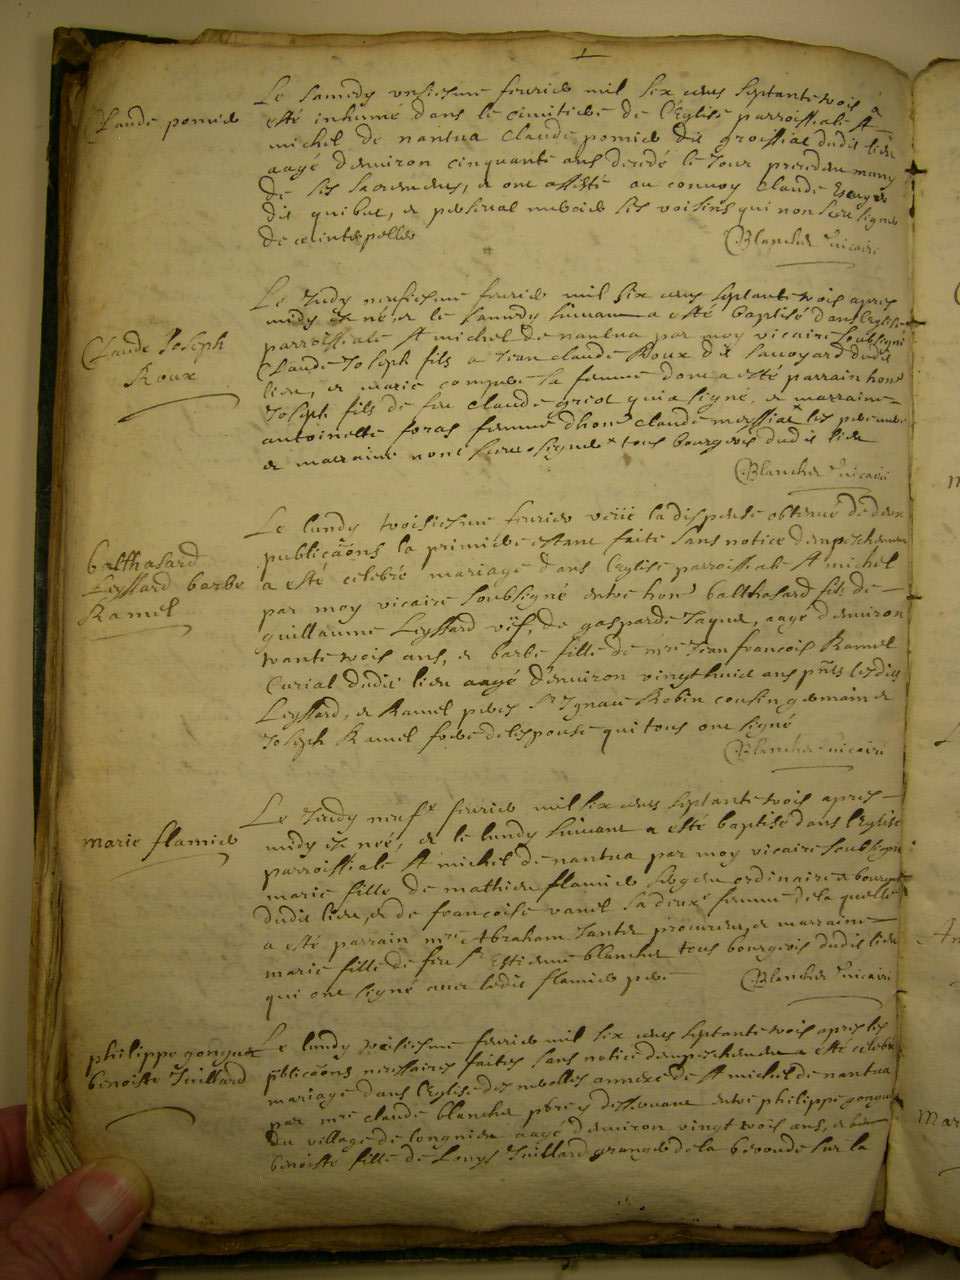 Claude pomier
Le samedy unsiesme fevrier mil six cens septante trois a
esté inhumé dans le cimitiere de l'Eglise parroissiale St
michel de nantua Claude pomier dit groissiat dudit lieu
aagé d'environ cinquante ans decedé le Jour precedant muny
de ses sacremens, et ont assisté au convoy claude
dit quibut, et ses voisins qui nont sceu signer
de ce interpelles
Blanchet vicaire
Claude Joseph
Roux
Le Judy neufiesme fevrier mil six cens septante trois apres
midy est né, et le samedy suivant a esté baptisé dans l'eglise
parroissiale St michel de nantua par moy vicaire soubsigné
Claude Joseph fils a Jean claude Roux dit savoyard dudit
lieu, et marie sa femme dont a esté parrain hon
Joseph fils de feu claude griot qui a signé, et marraine
antoinette foras femme d'hon claude messiat les pere
et marraine n'ont sceu signer tous bourgeois dudit lieu
Blanchet vicaire
balthasard
Leyssard barbe
Ramel
Le lundy troisiesme fevrier la dispense obtenue de deux
publicaõns la premiere estant faite sans notice d'empeschement
a esté celebré mariage dans l'eglise parroissiale St michel
par moy vicaire soubsigné entre hon balthasard fils de
guillaume Leyssard de gasparde Jaquet, aagé d'environ
trante trois ans, et barbe fille de mre Jean francois Ramel
Curial dudit lieu aagé d'environ vingt huit ans pñts lesdits
Leyssard, et Ramel peres Sr Ignace Robin cousin germain et
Joseph Ramel frere de l'espouse qui tous ont signé
Blanchet vicaire
marie flamier
Le Judy neuf fevrier mil six cens septante trois apres
midy est neé, et le lundy suivant a esté baptisé dans l'Eglise
parroissiale St michel de nantua par moy vicaire soubsigné
marie fille de mathieu flamier ordinaire et bourgeois
dudit lieu, et de francoise vanel sa femme de la quelle
a esté parrain mre Abraham Jantet procureur, et marraine
marie fille de feu Sr Estienne blanchet tous bourgeois dudit lieu
qui ont signé avec ledit flamier pere
Blanchet vicaire
philippe gonguet
benoiste Juillard
Le lundy troisiesme fevrier mil six cens septante trois apres les
publicaõns necessaires faites sans notice d'empeschement a esté celebré
mariage dans l'Eglise des annexe de St michel de nantua
par mre claude blanchet entre philippe gonguet
du village de aagé d'environ vingt trois ans, et
benoiste fille de Louys Juillard granger de la sur la